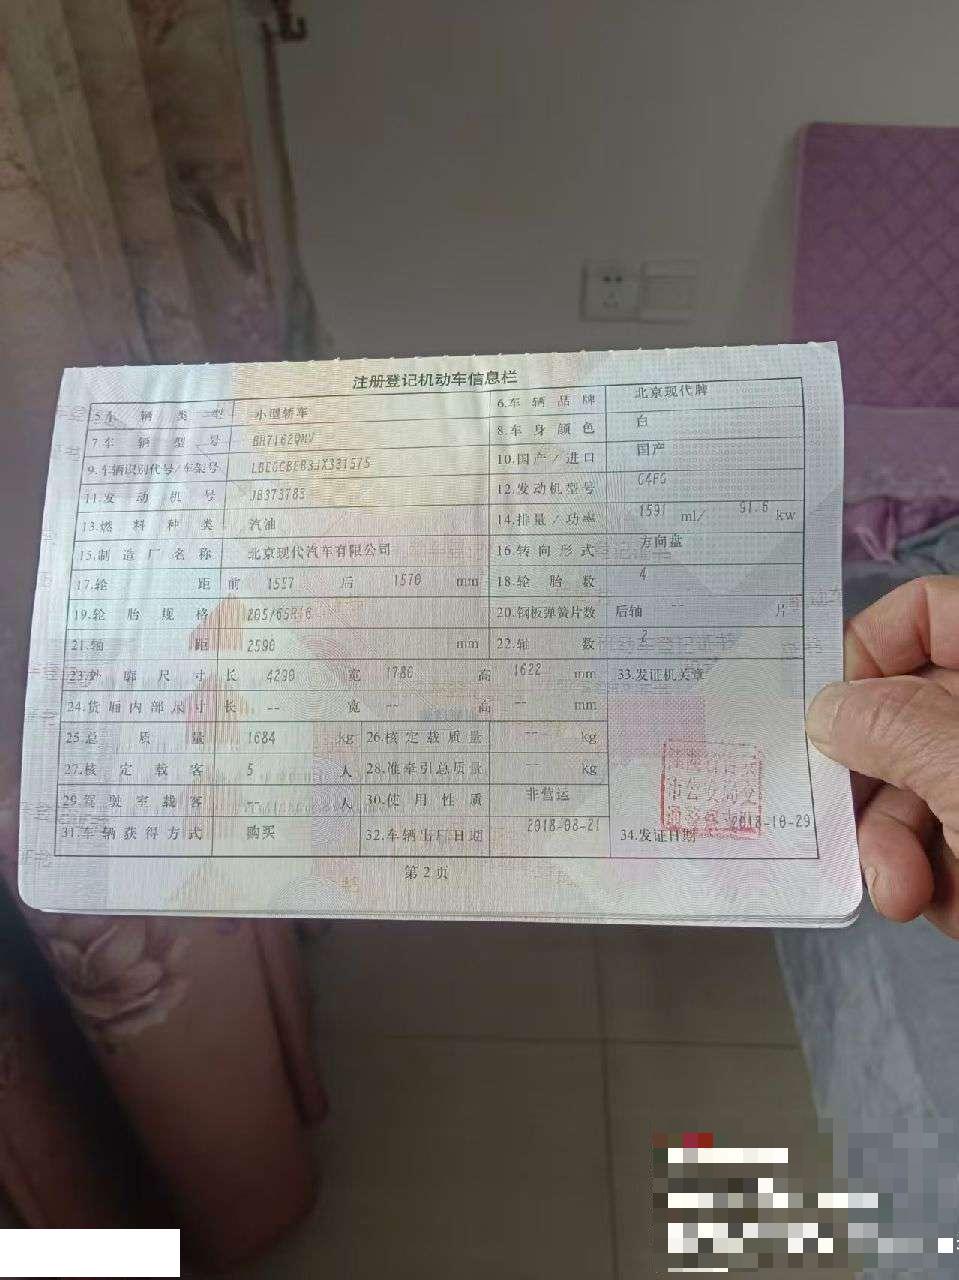 注册登记机动车信息栏
5.车辆类型 小型轿车 6.车辆品牌 北京现代牌
7.车辆型号 BH7162QMV 8.车身颜色 白
9.车辆识别代号/车架号 10.国产/进口 国产
11.发动机号 JB373783 12.发动机型号 G4FG
13.燃料种类 汽油 14.排量/功率 1591 ml/ 91.6 kw
15.制造厂名称 北京现代汽车有限公司 16.转向形式 方向盘
17.轮距 前 1557 后 1570 mm 18.轮胎数 4
19.轮胎规格 205/65R16 20.钢板弹簧片数 后轴 -- 片
21.轴距 2590 mm 22.轴数 2
23.外廓尺寸 长 4290 宽 1780 高 1622 mm 33.发证机关章
24.货厢内部尺寸 长 -- 宽 -- 高 -- mm
25.总质量 1684 kg 26.核定载质量 -- kg
27.核定载客 5 人 28.准牵引总质量 -- kg
29.驾驶室载客 人 30.使用性质 非营运
31.车辆获得方式 购买 32.车辆出厂日期 2018-08-21 34.发证日期 2018-10-29
第2页